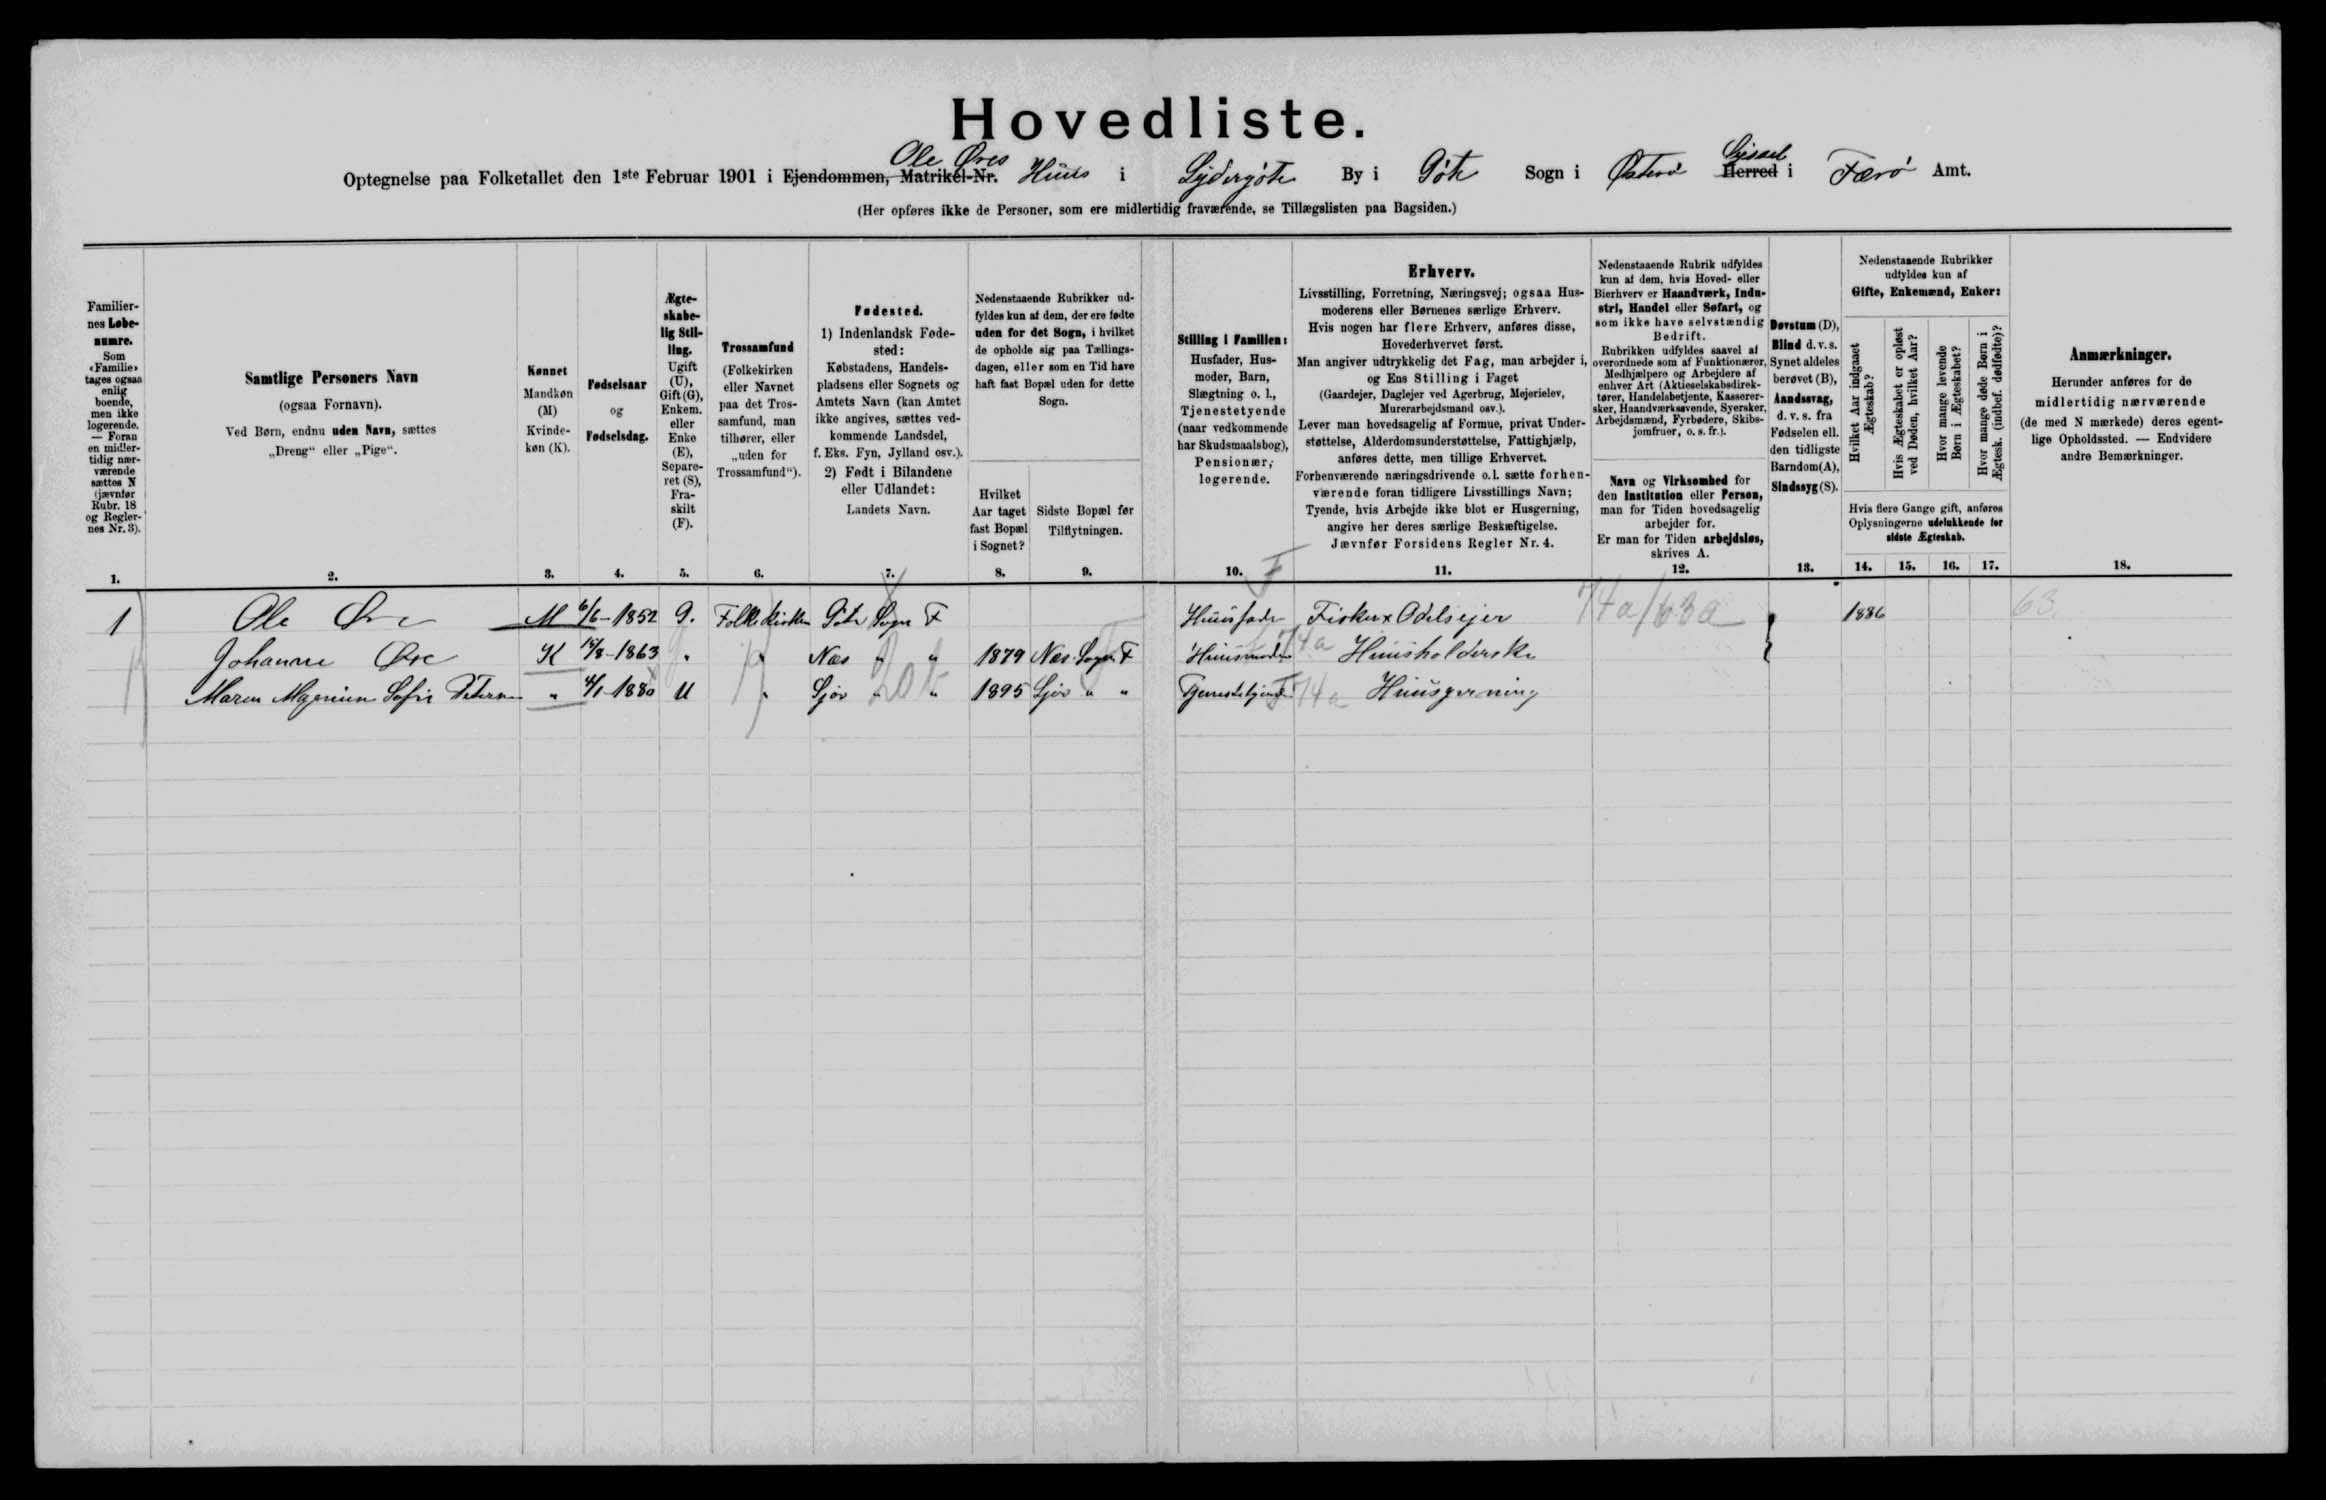 Hovedliste.
Ole Øres Syssel
Optegnelse paa Folketallet den 1ste Februar 1901 i Ejendommen, Matrikel-Nr. Huus i Sydergöte By i Göte Sogn i Österö Herred i Færö Amt.
(Her opføres ikke de Personer, som ere midlertidig fraværende, se Tillægslisten paa Bagsiden.)
Familiernes Løbenumre.
Som «Familie» tages ogsaa enlig boende, men ikke logerende. — Foran en midlertidig nærværende sættes N (jævnfør Rubr. 18 og Reglernes Nr. 3).
1.
Samtlige Personers Navn
(ogsaa Fornavn).
Ved Børn, endnu uden Navn, sættes
„Dreng“ eller „Pige“.
2.
Kønnet
Mandkøn (M)
Kvindekøn (K).
3.
Fødselsaar
og
Fødselsdag.
4.
Ægteskabelig Stilling.
Ugift (U), Gift (G), Enkem. eller Enke (E), Separeret (S), Fraskilt (F).
5.
Trossamfund
(Folkekirken eller Navnet paa det Trossamfund, man tilhører, eller „uden for Trossamfund“).
6.
Fødested.
1) Indenlandsk Fødested:
Købstadens, Handelspladsens eller Sognets og Amtets Navn (kan Amtet ikke angives, sættes vedkommende Landsdel, f. Eks. Fyn, Jylland osv.).
2) Født i Bilandene eller Udlandet:
Landets Navn.
7.
Nedenstaaende Rubrikker udfyldes kun af dem, der ere fødte uden for det Sogn, i hvilket de opholde sig paa Tællingsdagen, eller som en Tid have haft fast Bopæl uden for dette Sogn.
Hvilket Aar taget fast Bopæl i Sognet?
8.
Sidste Bopæl før Tilflytningen.
9.
Stilling i Familien:
Husfader, Husmoder, Barn, Slægtning o. l., Tjenestetyende (naar vedkommende har Skudsmaalsbog), Pensionær, logerende.
10.
Erhverv.
Livsstilling, Forretning, Næringsvej; ogsaa Husmoderens eller Børnenes særlige Erhverv.
Hvis nogen har flere Erhverv, anføres disse, Hovederhvervet først.
Man angiver udtrykkelig det Fag, man arbejder i, og Ens Stilling i Faget
(Gaardejer, Daglejer ved Agerbrug, Mejerielev, Murerarbejdsmand osv.).
Lever man hovedsagelig af Formue, privat Understøttelse, Alderdomsunderstøttelse, Fattighjælp, anføres dette, men tillige Erhvervet.
Forhenværende næringsdrivende o. l. sætte forhenværende foran tidligere Livsstillings Navn;
Tyende, hvis Arbejde ikke blot er Husgerning, angive her deres særlige Beskæftigelse.
Jævnfør Forsidens Regler Nr. 4.
11.
Nedenstaaende Rubrik udfyldes kun af dem, hvis Hoved- eller Bierhverv er Haandværk, Industri, Handel eller Søfart, og som ikke have selvstændig Bedrift.
Rubrikken udfyldes saavel af overordnede som af Funktionærer, Medhjælpere og Arbejdere af enhver Art (Aktieselskabsdirektører, Handelsbetjente, Kasserersker, Haandværkssvende, Syersker, Arbejdsmænd, Fyrbødere, Skibsjomfruer, o. s. fr.).
Navn og Virksomhed for den Institution eller Person, man for Tiden hovedsagelig arbejder for.
Er man for Tiden arbejdsløs, skrives A.
12.
Døvstum (D),
Blind d. v. s. Synet aldeles berøvet (B),
Aandssvag, d. v. s. fra Fødselen ell. den tidligste Barndom (A),
Sindssyg (S).
13.
Nedenstaaende Rubrikker udfyldes kun af
Gifte, Enkemænd, Enker:
Hvilket Aar indgaaet Ægteskab?
Hvis Ægteskabet er opløst ved Døden, hvilket Aar?
Hvor mange levende Børn i Ægteskabet?
Hvor mange døde Børn i Ægtesk. (indbef. dødfødte)?
Hvis flere Gange gift, anføres Oplysningerne udelukkende for sidste Ægteskab.
14. 15. 16. 17.
Anmærkninger.
Herunder anføres for de midlertidig nærværende (de med N mærkede) deres egentlige Opholdssted. — Endvidere andre Bemærkninger.
18.
1 Ole Øre M 6/6-1852 G. Folkekirken Göte Sogn F Huusfader Fisker x Odelsejer 74a/63a 1886 63
Johanne Øre K 15/8-1863 " " Næs " " 1879 Næs Sogn F Huusmoder 74a Huusholderske
Maren Sofie Petersen " 4/1-1880 U " Sjov " " 20 1895 Sjov " " Tjenestetjende 74a Huusgerning